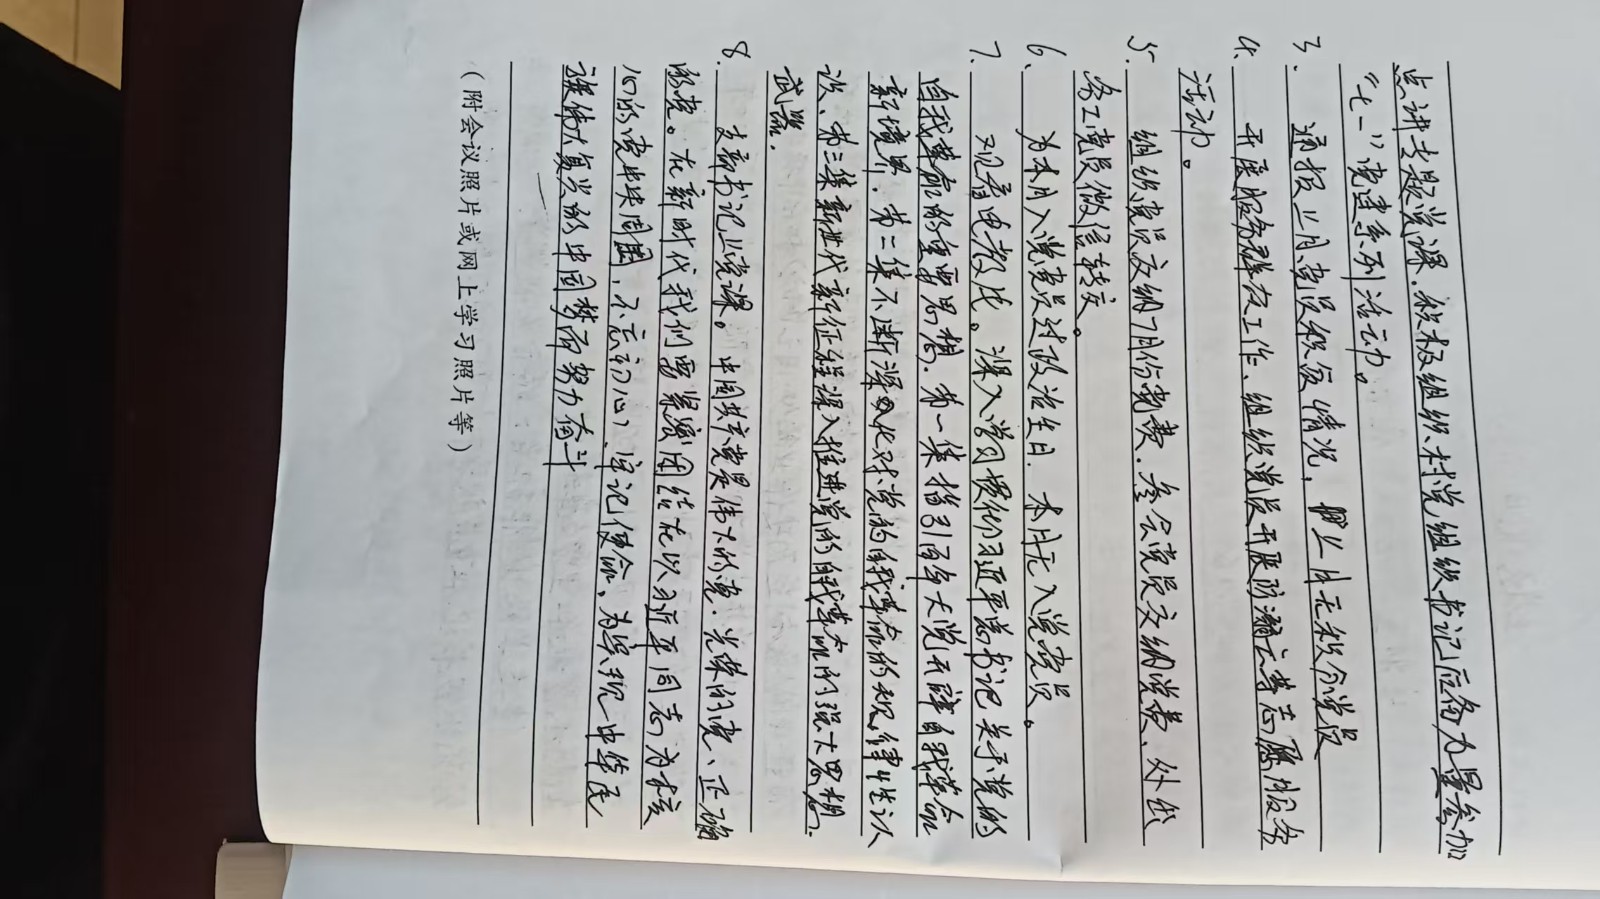 点讲专题党课.积极组织村党组织书记后备力量参加
“七一”党建系列活动。
3、通报上月党员积分情况，上月无积分党员
4、开展服务群众工作、组织党员开展防溺亡等志愿服务
活动。
5、组织党员交纳7月份党费.参会党员交纳党费、外出
务工党员微信转交。
6、为本月入党党员过政治生日.本月无入党党员。
7、观看电教片。深入学习贯彻习近平总书记关于党的
自我革命的重要思想.第一集指引百年大党开辟自我革命
新境界.第二集不断深化对党的自我革命的规律性认
识、第三集新时代新征程深入推进党的自我革命的强大思想
武器.
8、支部书记上党课。中国共产党是伟大的党.光荣的党、正确
的党。在新时代我们要紧密团结在以习近平同志为核
心的党中央周围，不忘初心、牢记使命，为实现中华民
族伟大复兴的中国梦而努力奋斗
（附会议照片或网上学习照片等）